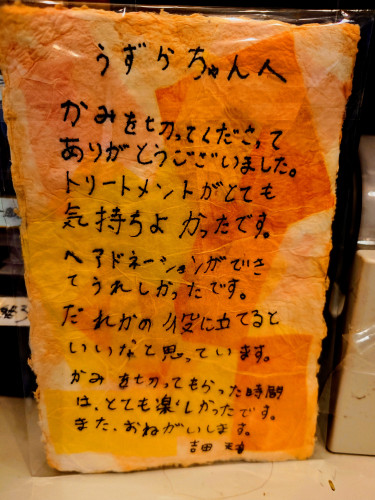 うずらちゃんへ
かみを切ってくださって
ありがとうございました。
トリートメントがとても
気持ちよかったです。
ヘアドネーションができ
てうれしかったです。
だれかの役に立てると
いいなと思っています。
かみを切ってもらった時間
は、とても楽しかったです。
また、おねがいします。
吉田